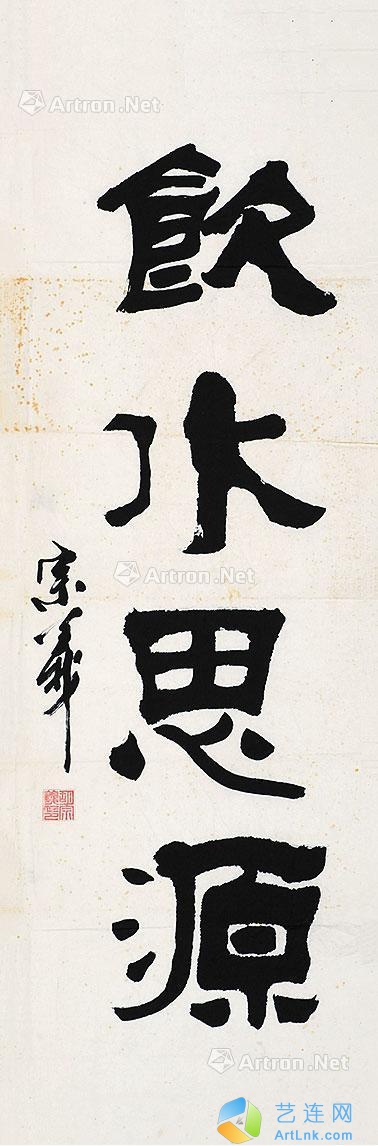 飲水思源
宗義
Artron.Net
Artron.Net
Artron.Net
艺连网
ArtLnk.com